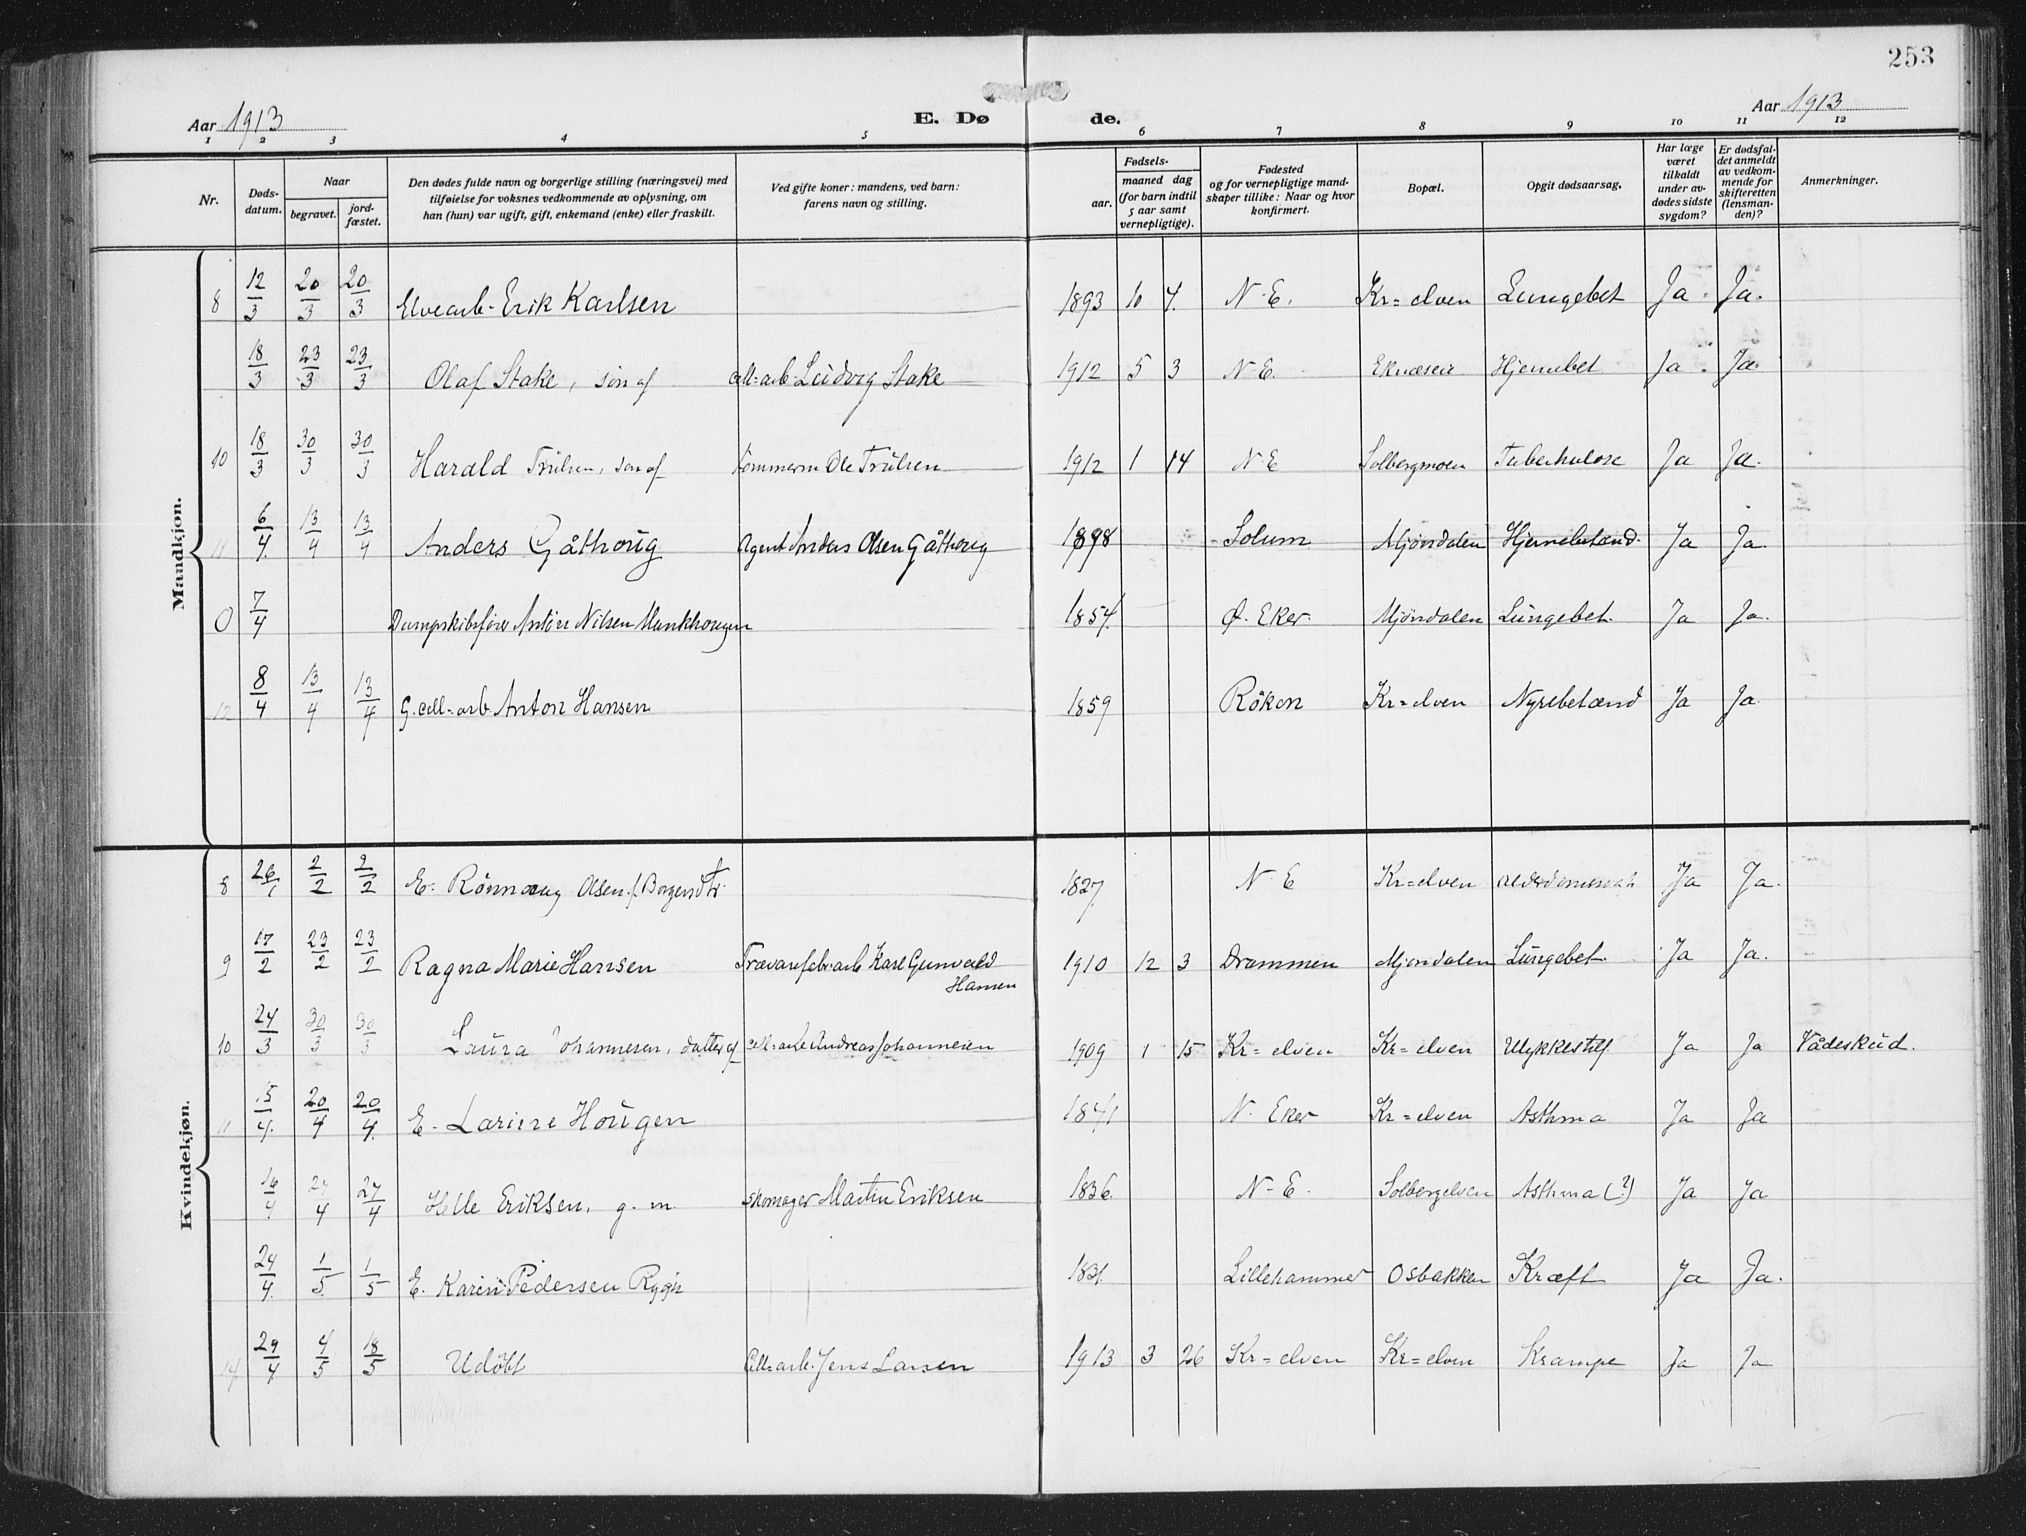 253
Aar 1913
E. Dø
de.
Aar 1913
1 2 3 4 5 6 7 8 9 10 11 12
Nr.
Døds-
datum.
Naar
begravet.
jord-
fæstet.
Den dødes fulde navn og borgerlige stilling (næringsvei) med
tilføielse for voksnes vedkommende av oplysning, om
han (hun) var ugift, gift, enkemand (enke) eller fraskilt.
Ved gifte koner: mandens, ved barn:
farens navn og stilling.
Fødsels-
aar.
maaned dag
(for barn indtil
5 aar samt
vernepligtige).
Fødested
og for vernepligtige mand-
skaper tillike: Naar og hvor
konfirmert.
Bopæl.
Opgit dødsaarsag.
Har læge
været
tilkaldt
under av-
dødes sidste
sygdom?
Er dødsfal-
det anmeldt
av vedkom-
mende for
skifteretten
(lensman-
den)?
Anmerkninger.
Mandkjøn.
8 12/3 20/3 20/3 Elvearb. Erik Karlsen 1893 10 4. N-E. Kr=elven Lungebet Ja. Ja.
18/3 23/3 23/3 Olaf Stake, søn af cell=arb Ludvig Stake 1912 5 3 N-E. Hjernebet Ja. Ja.
10 18/3 30/3 30/3 Harald Trulsen, søn af tømmerm Ole Trulsen 1912 1 14 N-E Solbergmoen Tuberkulose Ja Ja.
11 6/4. 13/4 13/4 Anders Gåthoug Agent Anders Olsen Gåthoug 1898 Solum Mjøndalen Hjernebetænd. Ja Ja.
0 7/4 Dampskibsfører Antòn Nilsen Munkhougen 1854. Ø. Eker. Mjøndalen Lungebet. Ja Ja.
12 8/4 13/4 13/4 G. cell=arb Anton Hansen 1859 Røken Kr=elven Nyrebetænd Ja Ja.
Kvindekjøn.
8 26/1 2/2 2/2 E. Rønnaug Olsen f. Borgersdtr. 1827 N-E Kr=elven Ja Ja.
9 17/2 23/2 23/2 Ragna Marie Hansen Trævarefabr.arb Karl Gunvald
Hansen 1910 12 3 Drammen Mjøndalen Lungebet. Ja Ja.
10 24/3 30/3 30/3 Laura Johannesen, datter af cell=arb Andreas Johannesen 1909 1 15 Kr=elven Kr=elven Ulykkestilf. Ja Ja Vådeskud.
11 15/4. 20/4 20/4. E. Larine Hougen 1841 N. Eker Kr=elven Asthma Ja Ja
16/4 27/4 27/4 Helle Eriksen, g. m. skomager Martin Eriksen 1836. N-E. Solbergelven Asthma (?) Ja Ja
24/4. 1/5 1/5 E. Karen Pedersen Rygh 1831. Lillehammer Osbakken Kræft Ja Ja.
14 29/4 4/5 18/5 Udøbt Cell=arb. Jens Larsen 1913 3 26 Kr=elven Kr=elven Krampe Ja Ja